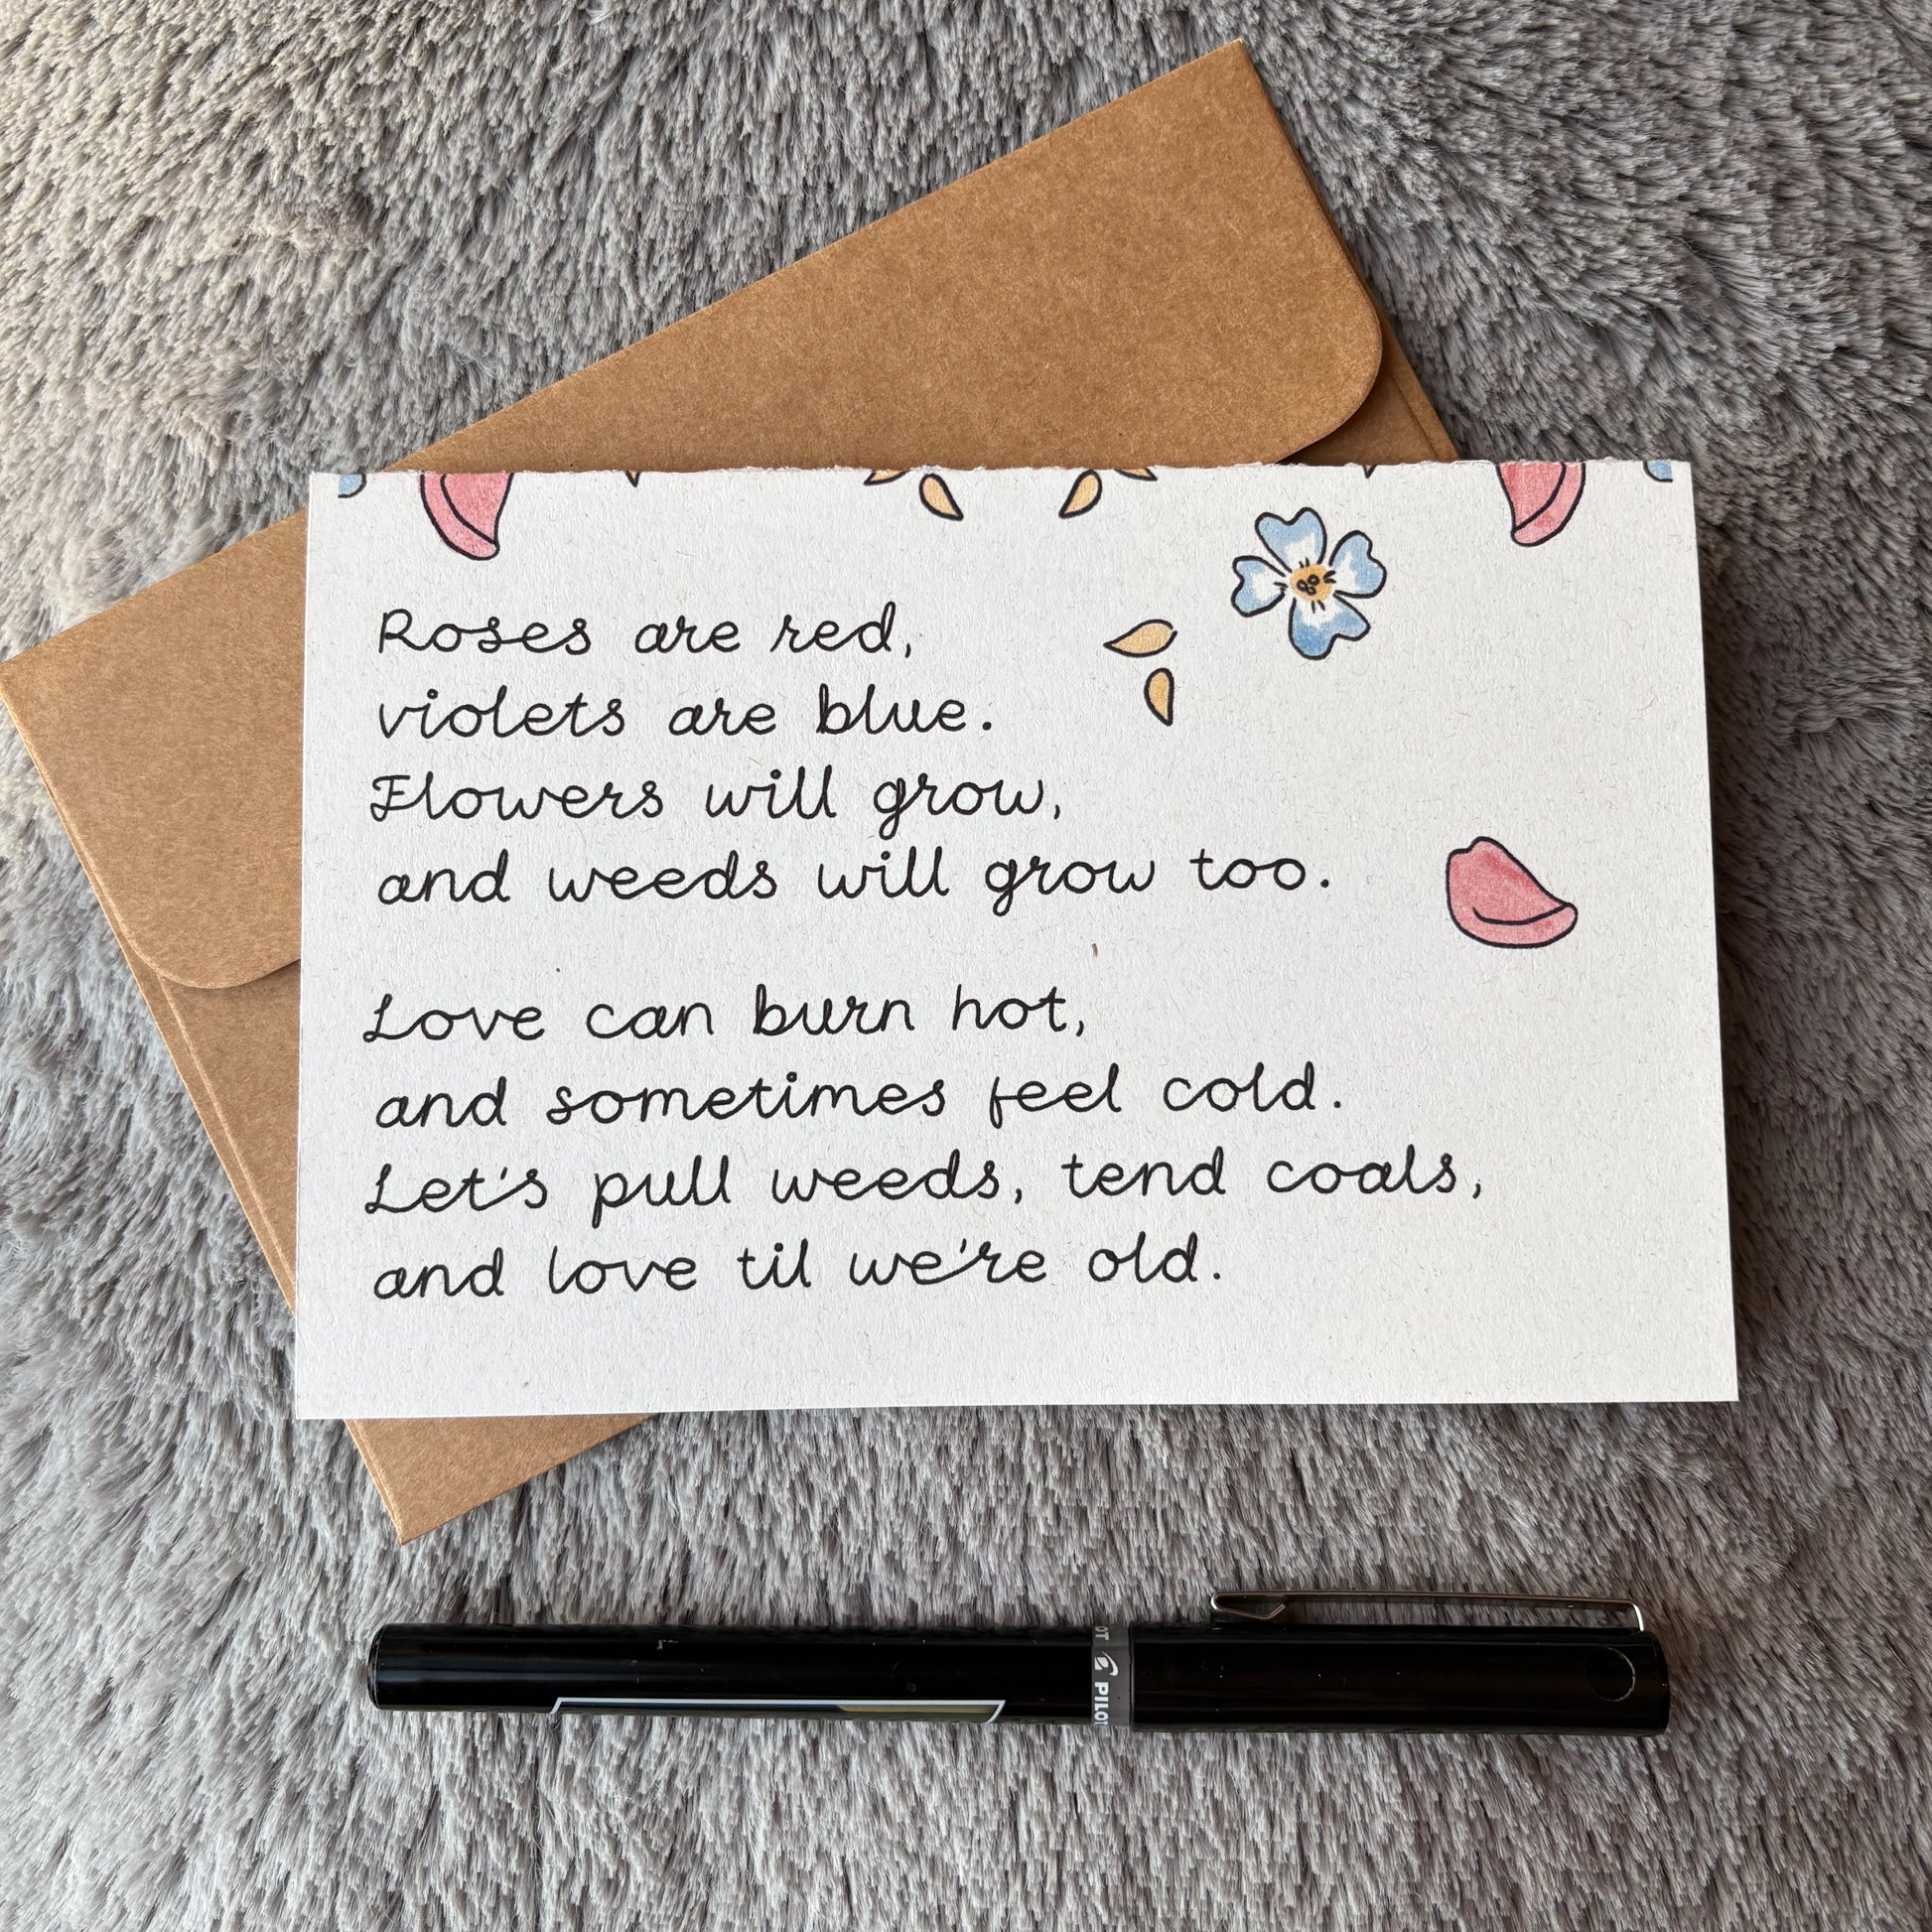 Roses are red,
violets are blue.
Flowers will grow,
and weeds will grow too.
Love can burn hot,
and sometimes feel cold.
Let's pull weeds, tend coals,
and love til we're old.
PILOT